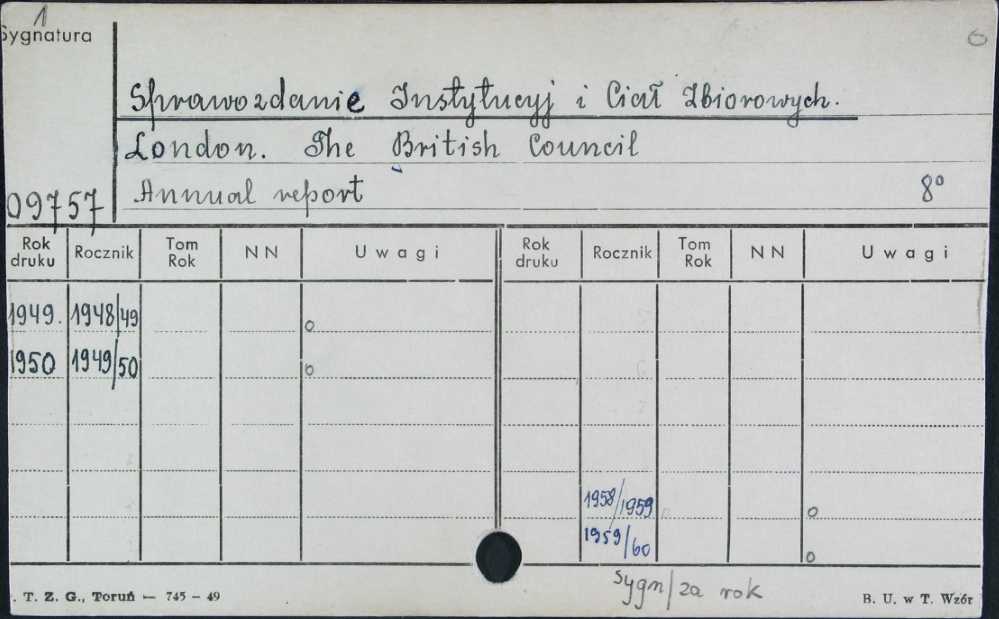 1
Sygnatura
Sprawozdanie Instytucyj i Ciał Zbiorowych.
London. The British Council
Annual report 8°
09757
Rok druku Rocznik Tom Rok NN Uwagi Rok druku Rocznik Tom Rok NN Uwagi
1949. 1948/49 o
1950 1949/50 o
1958/1959 o
1959/60 o
Sygn/za rok
. T. Z. G., Toruń — 745 - 49 B. U. w T. Wzór